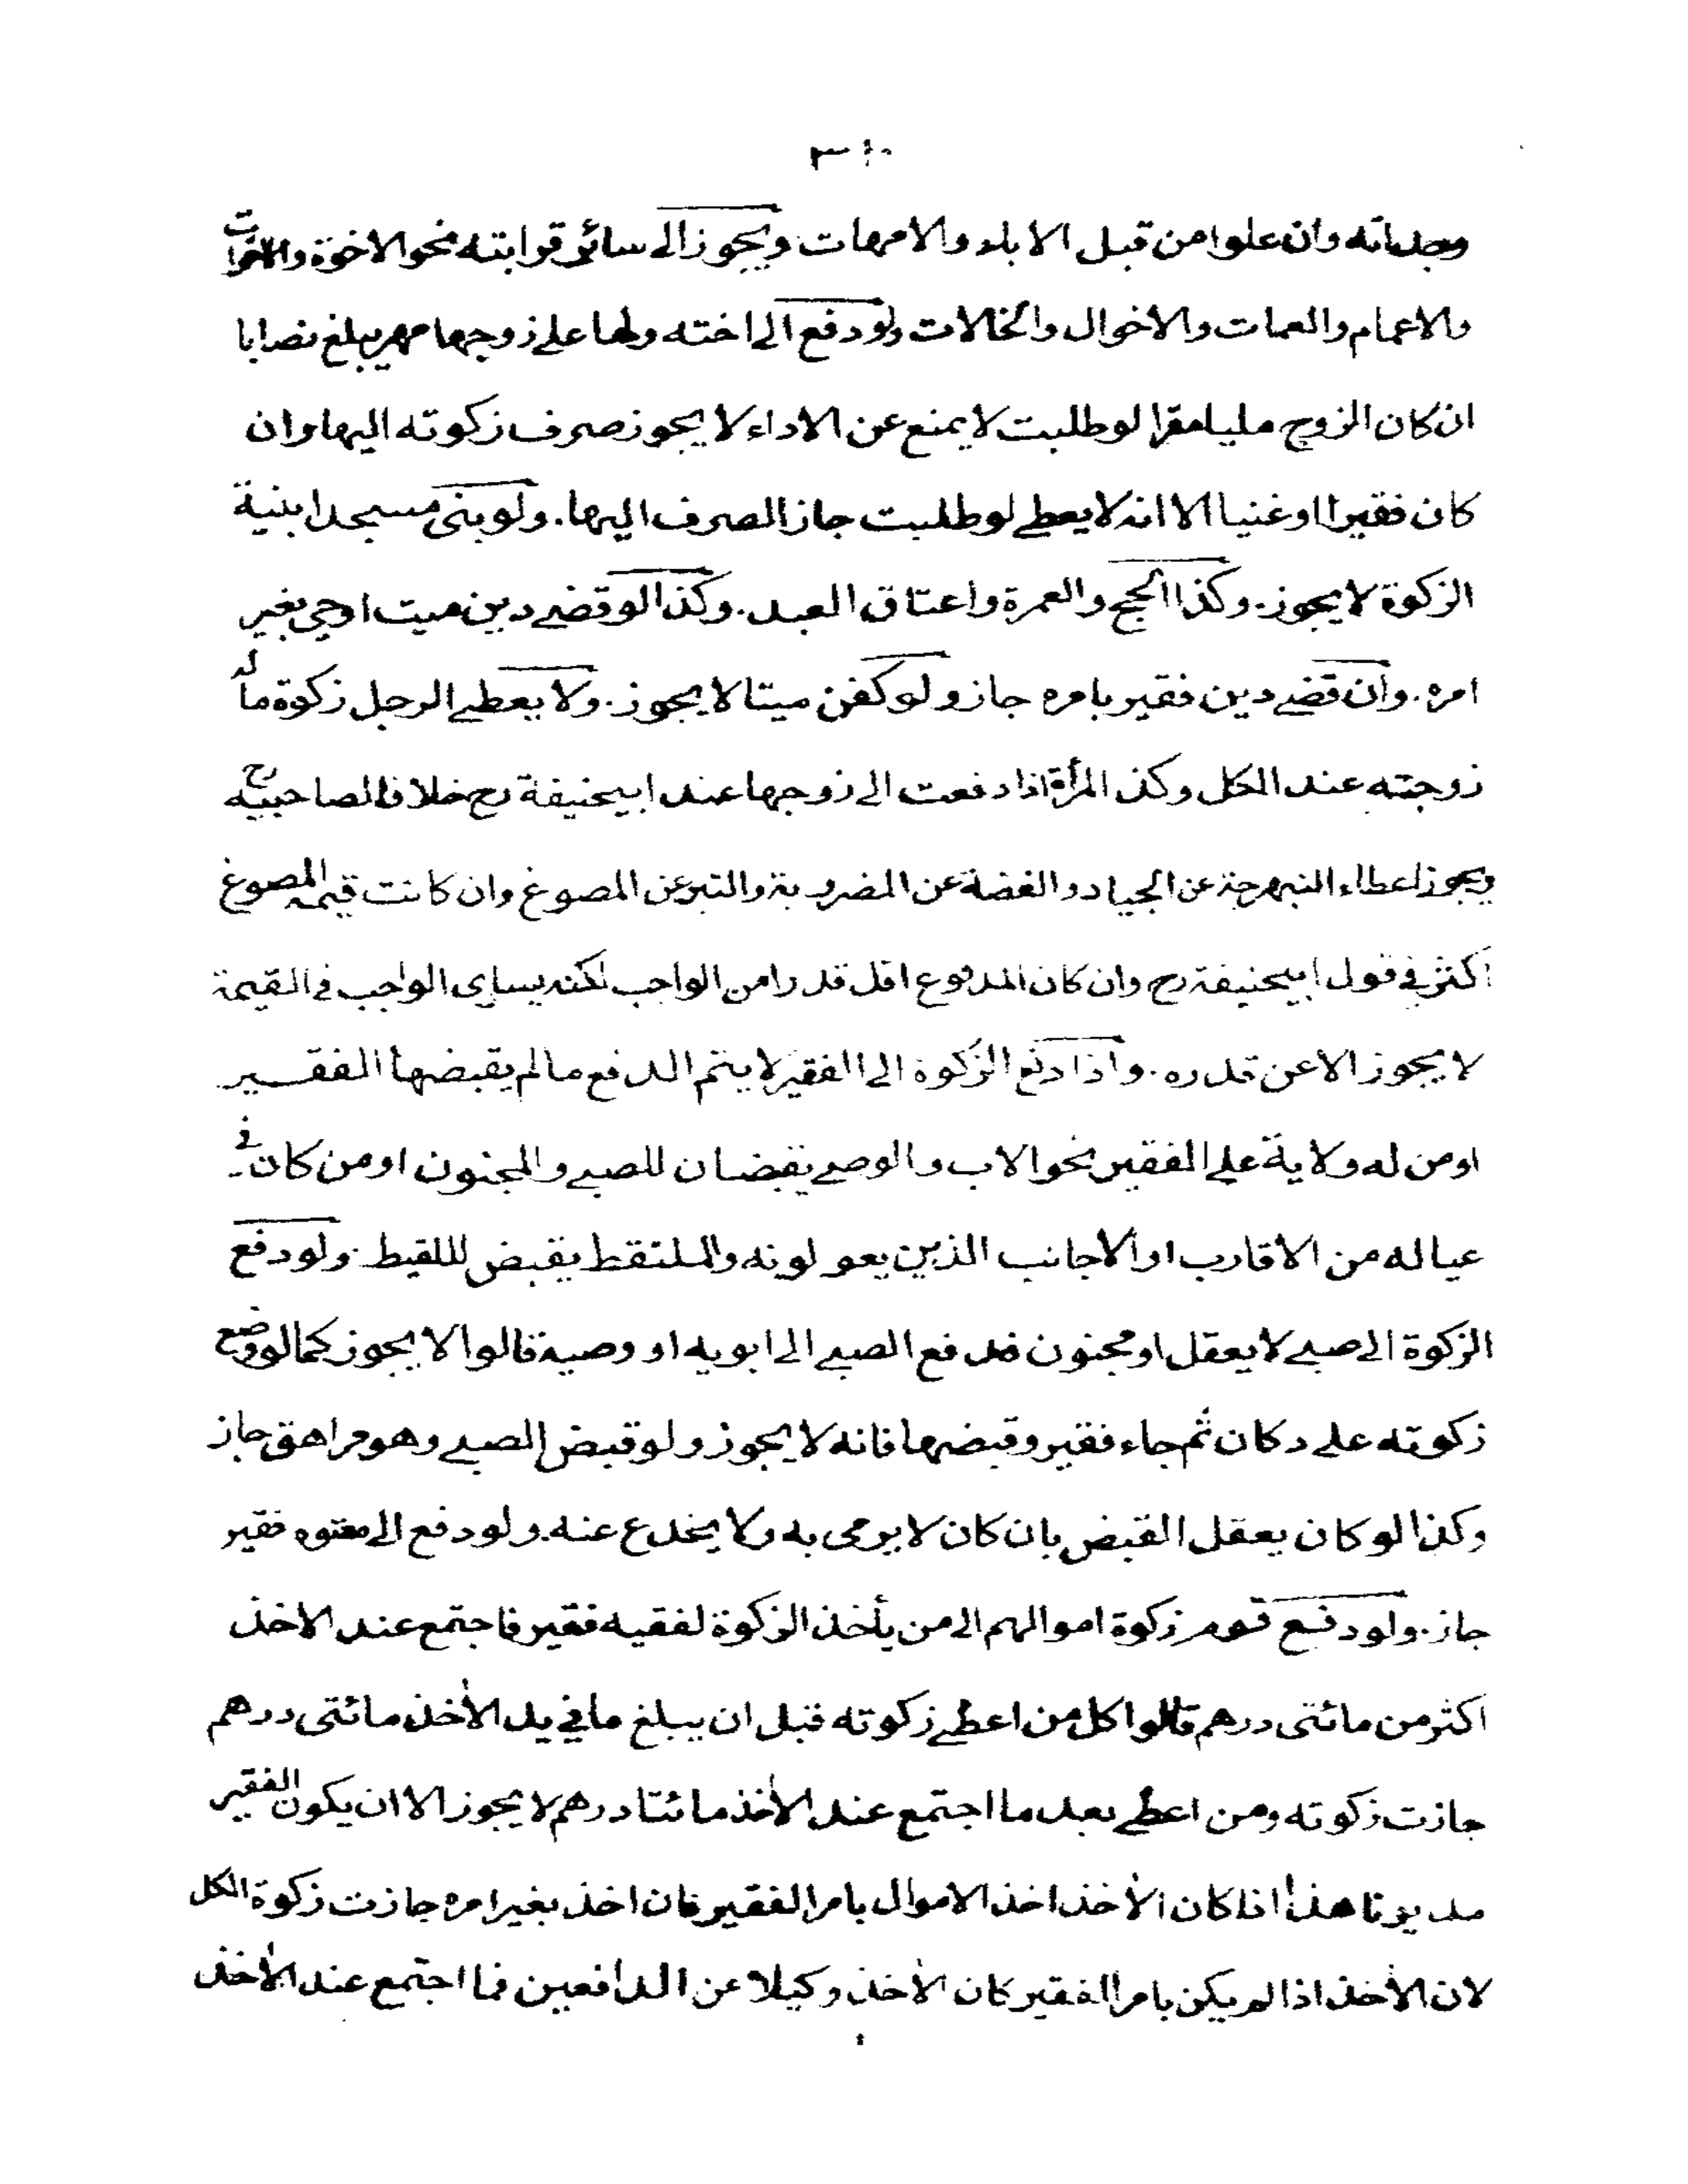 وجداته وان علوا من قبل الاباء والامهات ويجوز الى سائر قرابته نحو الاخوة والاخوات
والاعمام والعمات والاخوال والخالات ولو دفع الى اخته ولها على زوجها مهر يبلغ نصابا
ان كان الزوج مليا مقرا لو طلبت لا يمنع عن الاداء لا يجوز صرف زكوته اليها وان
كان فقيرا او غنيا الا انه لا يعطى لو طلبت جاز الصرف اليها. ولو بنى مسجدا بنية
الزكوة لا يجوز. وكذا الحج والعمرة واعتاق العبد. وكذا لو قضى دين ميت او حي بغير
امره. وان قضى دين فقير بامره جاز ولو كفن ميتا لا يجوز. ولا يعطى الرجل زكوة ماله
زوجته عند الكل وكذا المرأة اذا دفعت الى زوجها عند ابيحنيفة رح خلافا لصاحبيه رح
ويجوز اعطاء النبهرجة عن الجياد والفضة عن المضروبة والتبر عن المصوغ وان كانت قيمة المصوغ
اكثر في قول ابيحنيفة رح وان كان المدفوع اقل قدرا من الواجب لكنه يساوى الواجب في القيمة
لا يجوز الا عن قدره. واذا دفع الزكوة الى الفقير لا يتم الدفع ما لم يقبضها الفقير
او من له ولاية على الفقير نحو الاب والوصى يقبضان للصبى والمجنون او من كان في
عياله من الاقارب او الاجانب الذين يعولونه والملتقط يقبض لللقيط. ولو دفع
الزكوة الى صبى لا يعقل او مجنون فدفع الصبى الى ابويه او وصيه قالوا لا يجوز كما لو وضع
زكوته على دكان ثم جاء فقير وقبضها فانه لا يجوز ولو قبض الصبى وهو مراهق جاز
وكذا لو كان يعقل القبض بان كان لا يرمى به ولا يخدع عنه. ولو دفع الى معتوه فقير
جاز. ولو دفع قوم زكوة اموالهم الى من يأخذ الزكوة لفقيه فقير فاجتمع عند الاخذ
اكثر من مائتى درهم قالوا كل من اعطى زكوته قبل ان يبلغ ما في يد الأخذ مائتى درهم
جازت زكوته ومن اعطى بعد ما اجتمع عند الأخذ مائتا درهم لا يجوز الا ان يكون الفقير
مديونا هذا اذا كان الأخذ اخذ الاموال بامر الفقير فان اخذ بغير امره جازت زكوة الكل
لان الأخذ اذا لم يكن بامر الفقير كان الأخذ وكيلا عن الدافعين فما اجتمع عند الأخذ